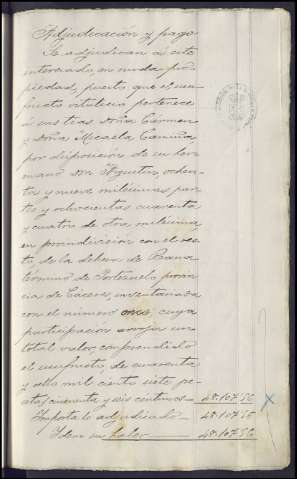 Adjudicación y pago
Se adjudican a este
interesado, en nuda pro
piedad, puesto que el usu
fructo vitalicio pertenece
a sus tias Doña Cármen
y Doña Micaela
por disposición de su her
mano Don Agustin, ochen
ta y nueve milésimas par
tes y ochocientas cuarenta
y cuatro de otra milésima,
en proindivisión con el res
to, de la dehesa de
término de Portezuelo, provin
cia de Cáceres, inventariada
con el número once, cuya
participación arroja un
total valor, comprendido
el usufructo, de cuarenta
y ocho mil ciento siete pe
setas cincuenta y seis centimos 48.107'56
Importa lo adjudicado 48.107'56
Y como su haber 48.107'56